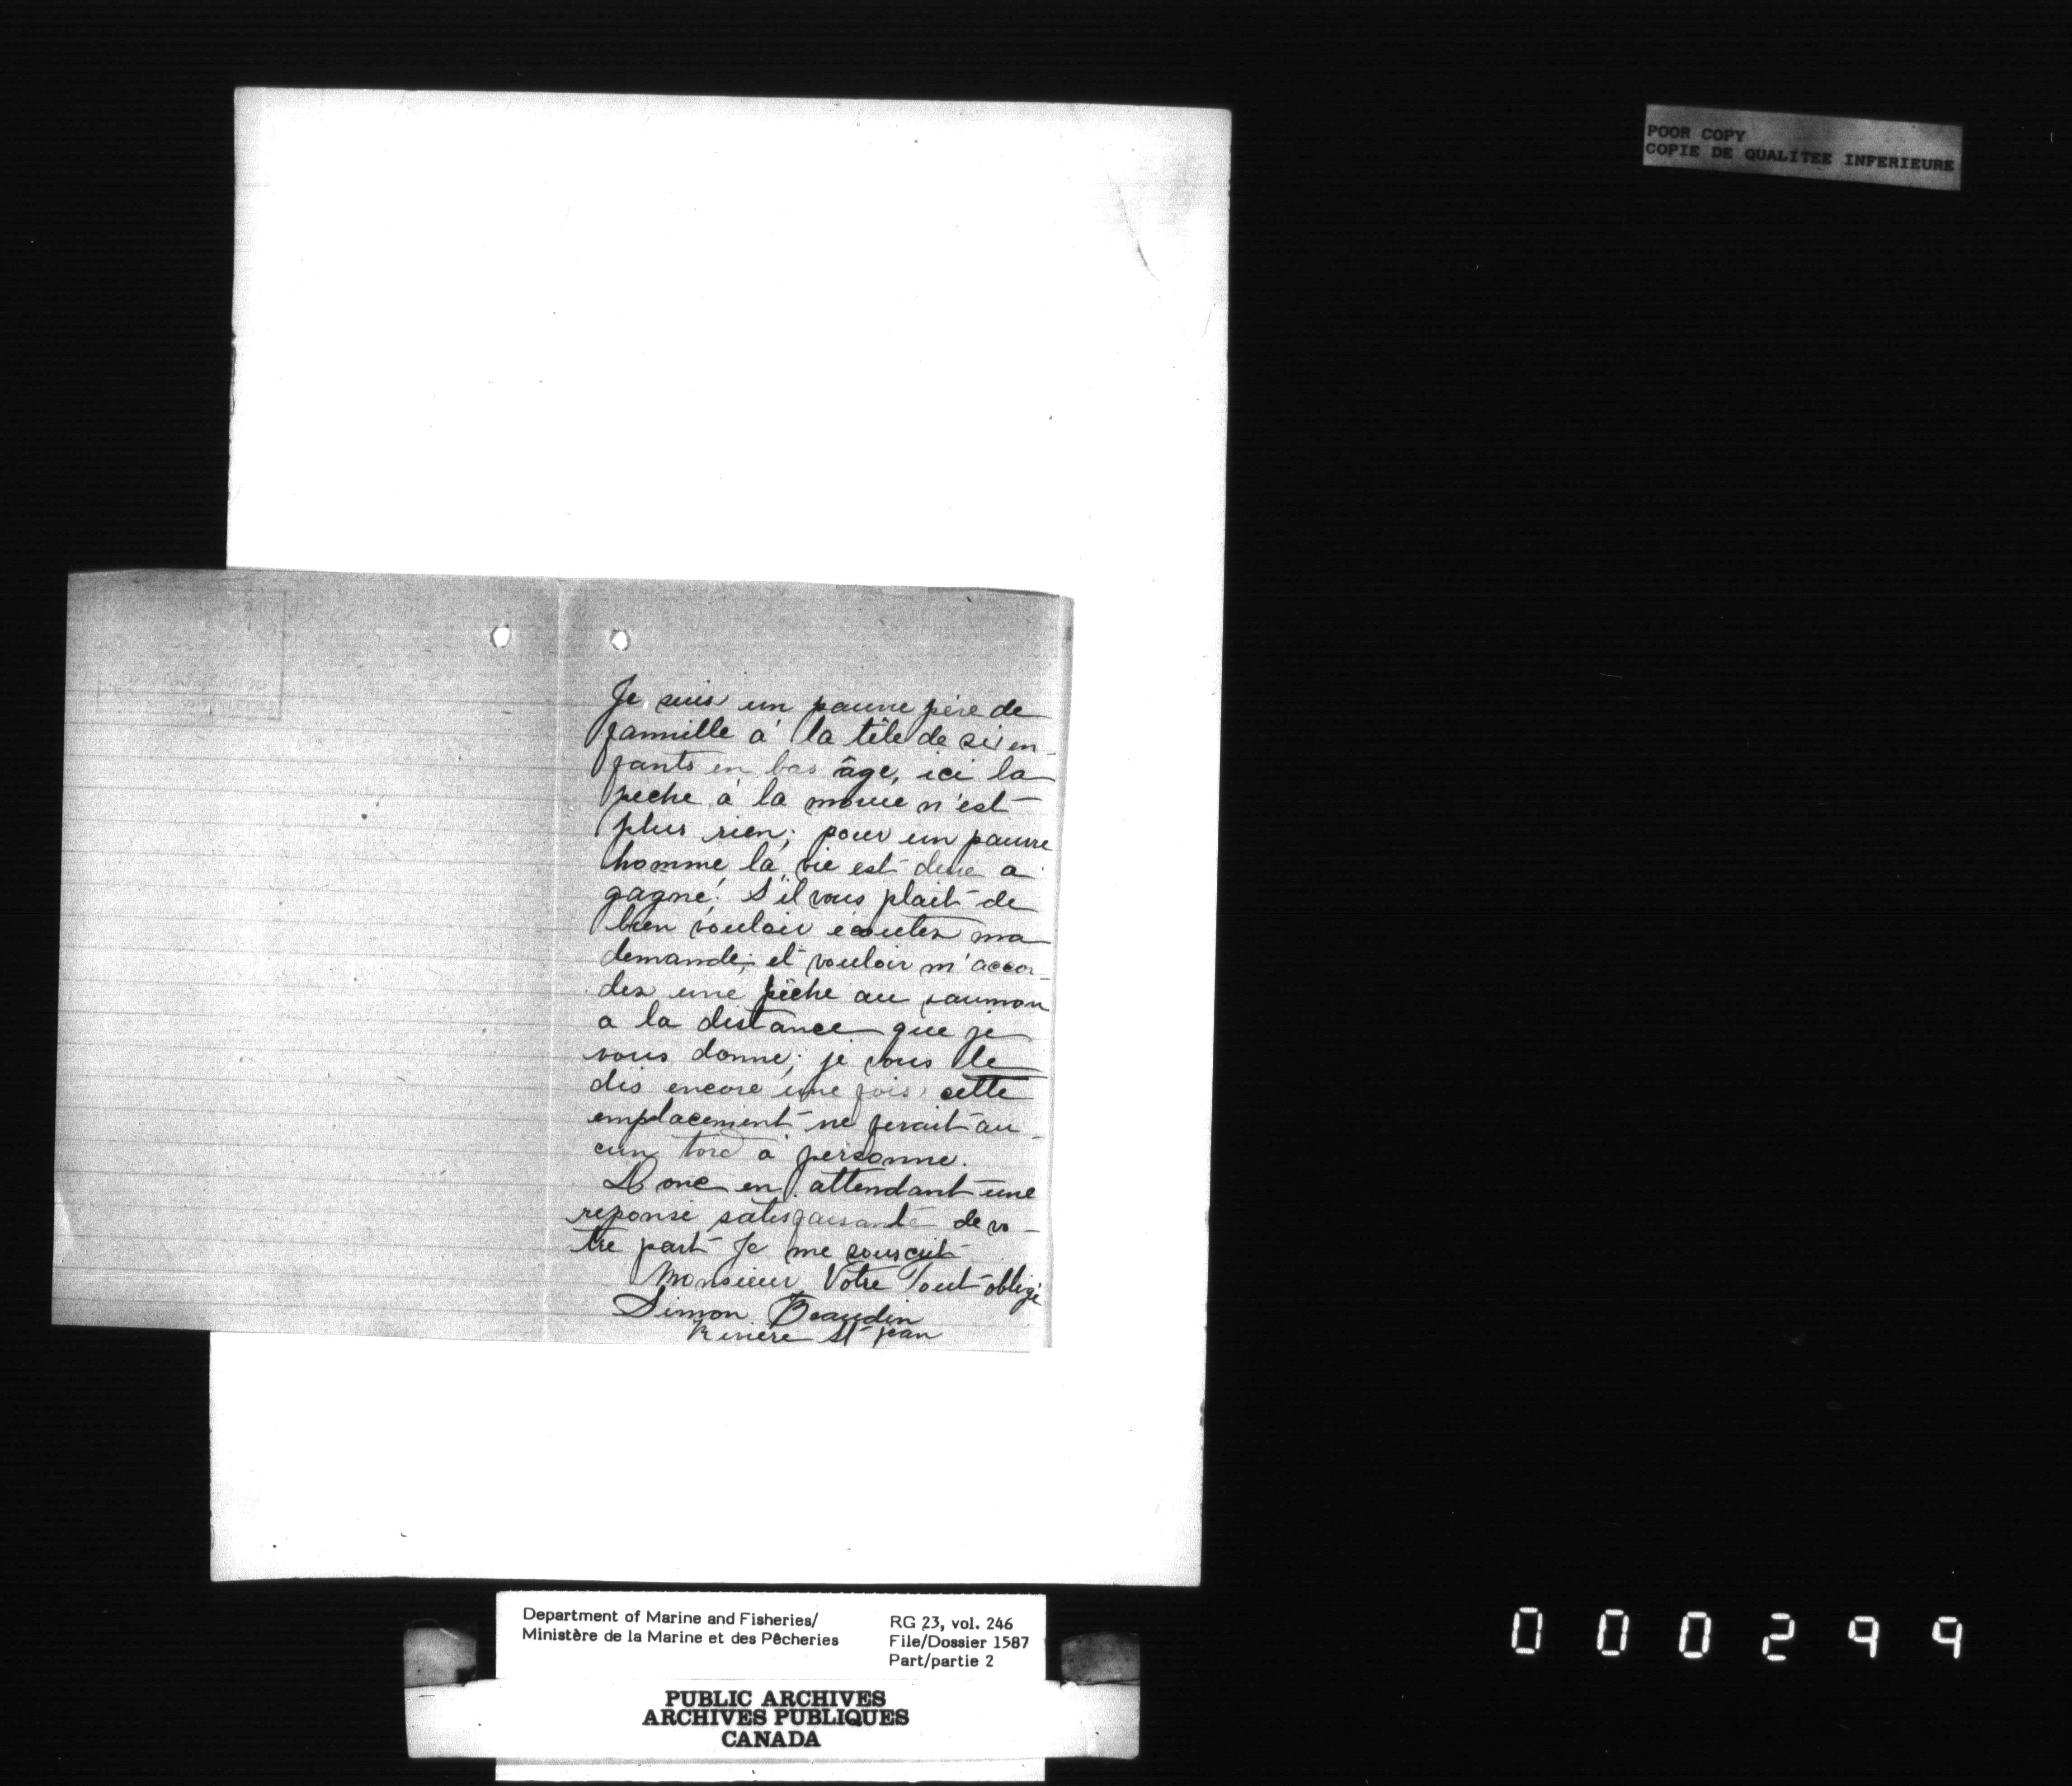 POOR COPY
COPIE DE QUALITEE INFERIEURE
Je suis un pauvre père de
fammille à la tête de si en-
fants en bas âge, ici la
pêche à la morue n'est
plus rien; pour un pauvre
homme la vie est dure a
gagné! S'il vous plait de
bien vouloir écouter ma
demande; et vouloir m'accor-
der une pêche au saumon
a la distance que je
vous donne; je vous le
dis encore une fois cette
emplacement ne ferait au-
cun tord à personne.
Donc en attendant une
reponse satisfaisante de vo-
tre part Je me souscrit
Monsieur Votre Tout obligé
Simon Beaudin
Rivière St jean
Department of Marine and Fisheries/
Ministère de la Marine et des Pêcheries
RG 23, vol. 246
File/Dossier 1587
Part/partie 2
PUBLIC ARCHIVES
ARCHIVES PUBLIQUES
CANADA
000299